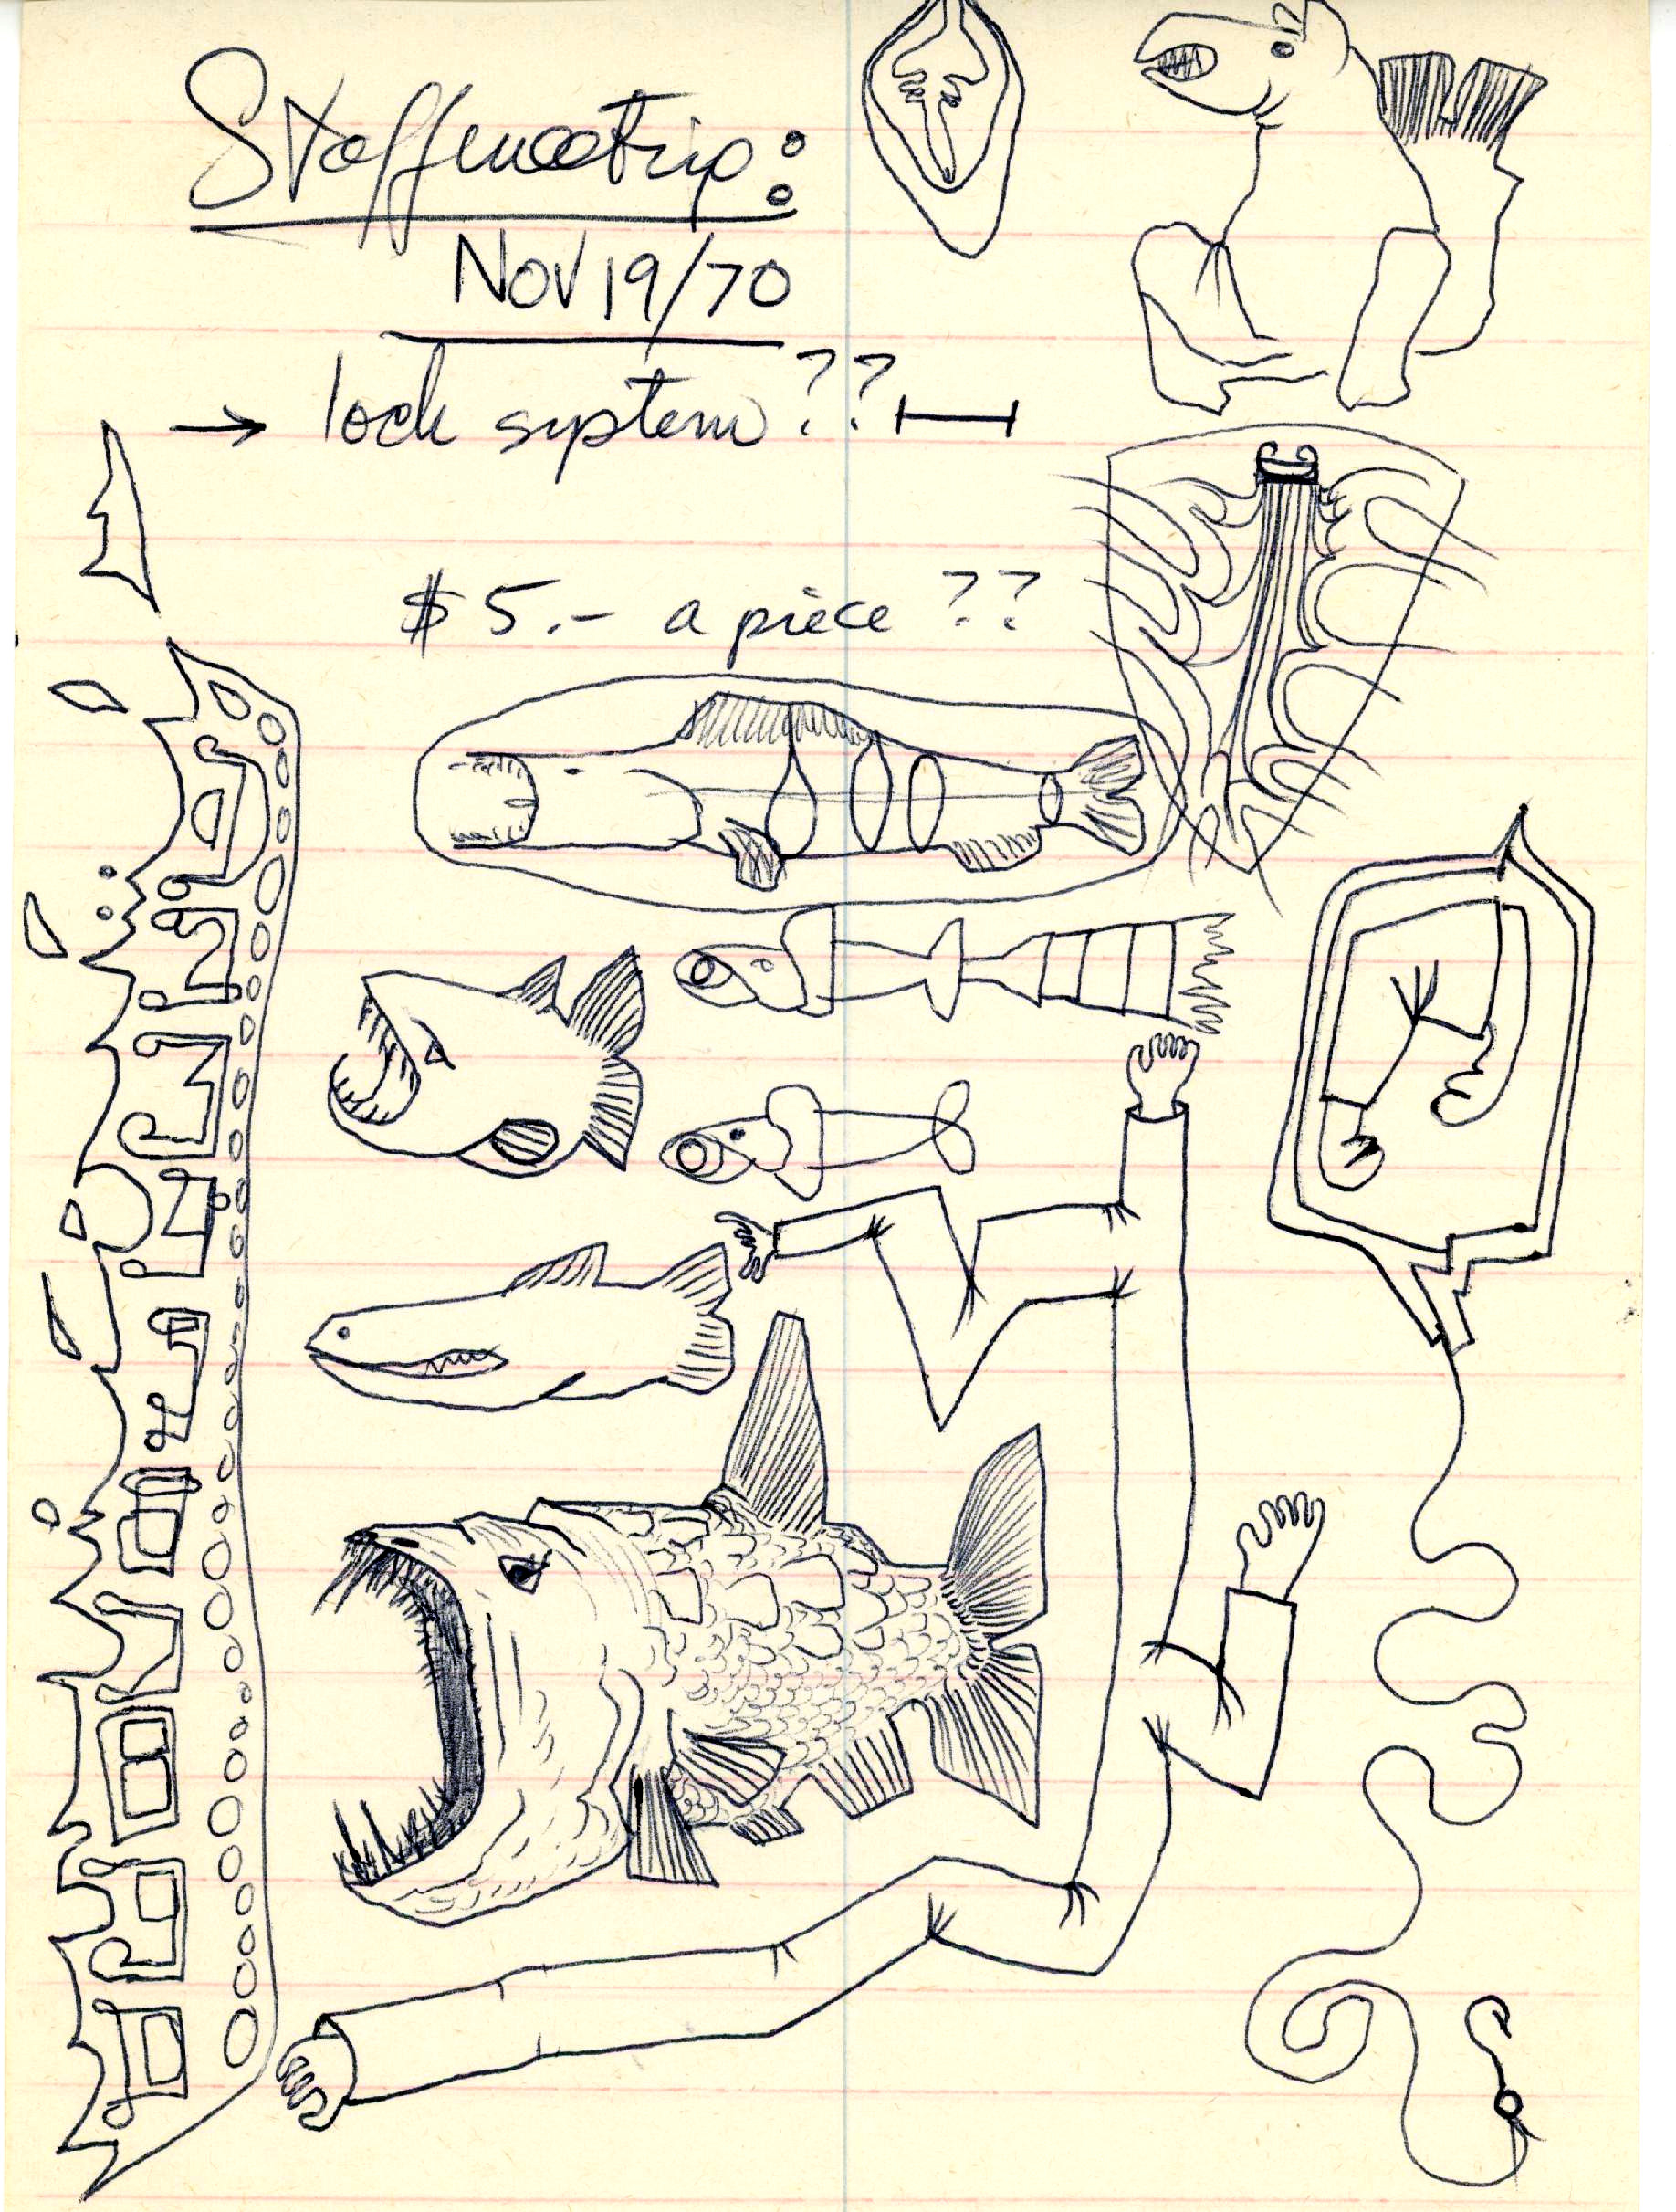 Nov 19/70
→ lock system ??
$5.- a piece ??